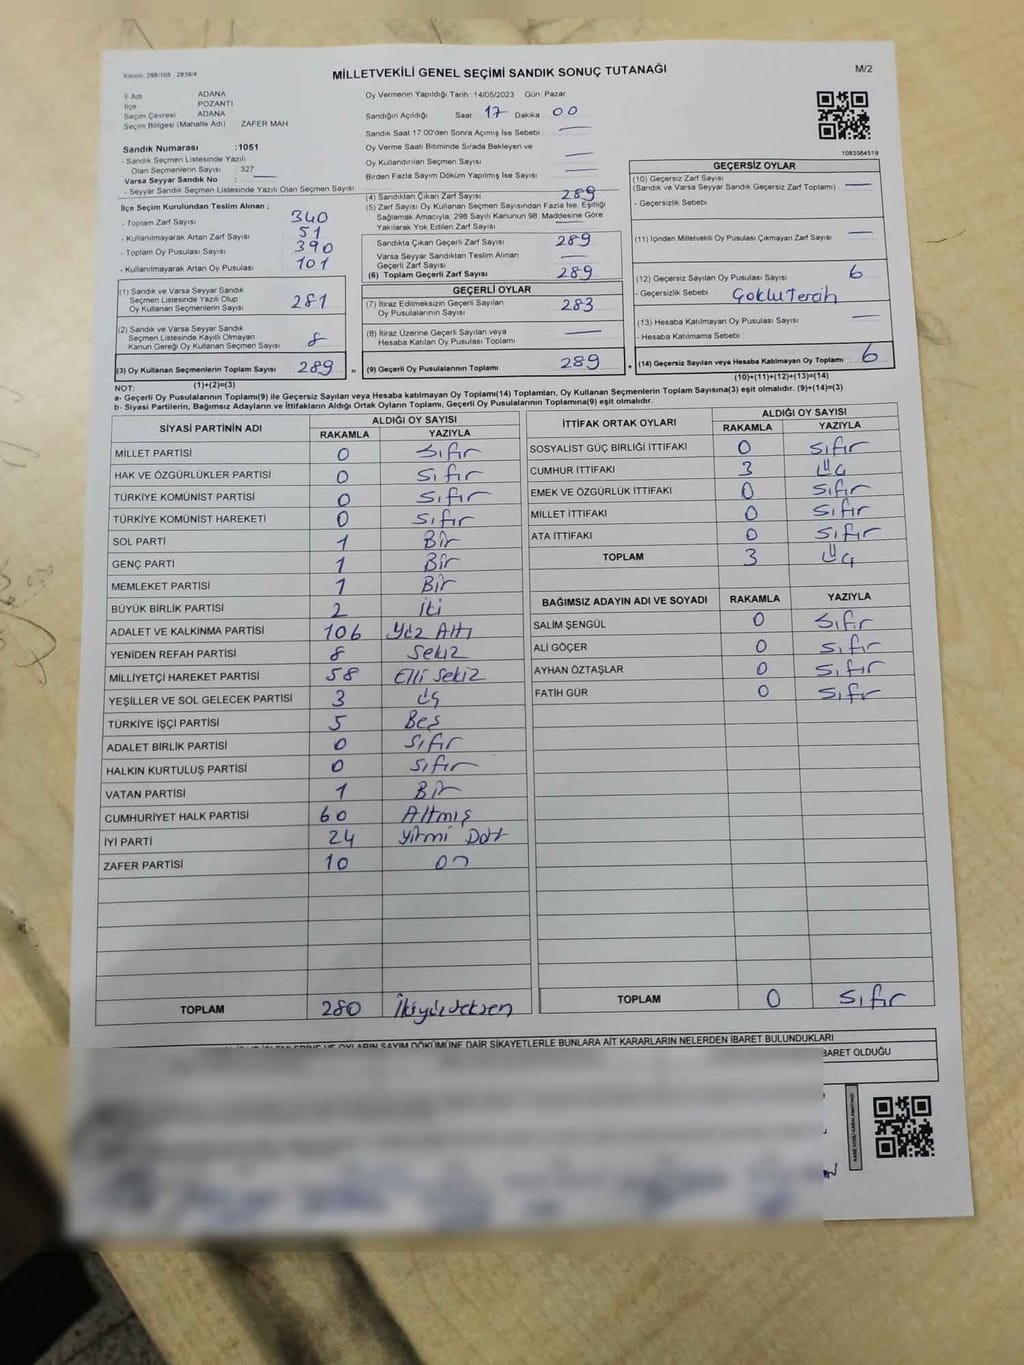 Kanun: 298/105 2839/4
MİLLETVEKİLİ GENEL SEÇİMİ SANDIK SONUÇ TUTANAĞI
M/2
İl Adı ADANA
İlçe POZANTI
Seçim Çevresi ADANA
Seçim Bölgesi (Mahalle Adı) ZAFER MAH
Sandık Numarası :1051
- Sandık Seçmen Listesinde Yazılı
Olan Seçmenlerin Sayısı : 327
Varsa Seyyar Sandık No :
- Seyyar Sandık Seçmen Listesinde Yazılı Olan Seçmen Sayısı
Oy Vermenin Yapıldığı Tarih :14/05/2023 Gün: Pazar
Sandığın Açıldığı Saat 17 Dakika 00
Sandık Saat 17.00'den Sonra Açmış İse Sebebi :
Oy Verme Saati Bitiminde Sırada Bekleyen ve
Oy Kullandırılan Seçmen Sayısı
Birden Fazla Sayım Döküm Yapılmış İse Sayısı
1083564519
İlçe Seçim Kurulundan Teslim Alınan ;
- Toplam Zarf Sayısı 340
- Kullanılmayarak Artan Zarf Sayısı 51
- Toplam Oy Pusulası Sayısı 390
- Kullanılmayarak Artan Oy Pusulası 101
(1) Sandık ve Varsa Seyyar Sandık
Seçmen Listesinde Yazılı Olup
Oy Kullanan Seçmenlerin Sayısı 281
(2) Sandık ve Varsa Seyyar Sandık
Seçmen Listesinde Kayıtlı Olmayan
Kanun Gereği Oy Kullanan Seçmen Sayısı 8
(3) Oy Kullanan Seçmenlerin Toplam Sayısı 289 =
(1)+(2)=(3)
(4) Sandıktan Çıkan Zarf Sayısı 289
(5) Zarf Sayısı Oy Kullanan Seçmen Sayısından Fazla İse, Eşitliği
Sağlamak Amacıyla, 298 Sayılı Kanunun 98. Maddesine Göre
Yakılarak Yok Edilen Zarf Sayısı
Sandıkta Çıkan Geçerli Zarf Sayısı 289
Varsa Seyyar Sandıktan Teslim Alınan
Geçerli Zarf Sayısı
(6) Toplam Geçerli Zarf Sayısı 289
GEÇERLİ OYLAR
(7) İtiraz Edilmeksizin Geçerli Sayılan
Oy Pusulalarının Sayısı 283
(8) İtiraz Üzerine Geçerli Sayılan veya
Hesaba Katılan Oy Pusulası Toplamı
(9) Geçerli Oy Pusulalarının Toplamı 289 +
GEÇERSİZ OYLAR
(10) Geçersiz Zarf Sayısı
(Sandık ve Varsa Seyyar Sandık Geçersiz Zarf Toplamı)
- Geçersizlik Sebebi
(11) İçinden Milletvekili Oy Pusulası Çıkmayan Zarf Sayısı
(12) Geçersiz Sayılan Oy Pusulası Sayısı 6
- Geçersizlik Sebebi Çoklu Tercih
(13) Hesaba Katılmayan Oy Pusulası Sayısı
- Hesaba Katılmama Sebebi
(14) Geçersiz Sayılan veya Hesaba Katılmayan Oy Toplamı 6
(10)+(11)+(12)+(13)=(14)
NOT:
a- Geçerli Oy Pusulalarının Toplamı(9) ile Geçersiz Sayılan veya Hesaba katılmayan Oy Toplamı(14) Toplamları, Oy Kullanan Seçmenlerin Toplam Sayısına(3) eşit olmalıdır. (9)+(14)=(3)
b- Siyasi Partilerin, Bağımsız Adayların ve İttifakların Aldığı Ortak Oyların Toplamı, Geçerli Oy Pusulalarının Toplamına(9) eşit olmalıdır.
SİYASİ PARTİNİN ADI ALDIĞI OY SAYISI
RAKAMLA YAZIYLA
MİLLET PARTİSİ 0 Sıfır
HAK VE ÖZGÜRLÜKLER PARTİSİ 0 Sıfır
TÜRKİYE KOMÜNİST PARTİSİ 0 Sıfır
TÜRKİYE KOMÜNİST HAREKETİ 0 Sıfır
SOL PARTİ 1 Bir
GENÇ PARTİ 1 Bir
MEMLEKET PARTİSİ 1 Bir
BÜYÜK BİRLİK PARTİSİ 2 İki
ADALET VE KALKINMA PARTİSİ 106 Yüz Altı
YENİDEN REFAH PARTİSİ 8 Sekiz
MİLLİYETÇİ HAREKET PARTİSİ 58 Elli Sekiz
YEŞİLLER VE SOL GELECEK PARTİSİ 3 Üç
TÜRKİYE İŞÇİ PARTİSİ 5 Beş
ADALET BİRLİK PARTİSİ 0 Sıfır
HALKIN KURTULUŞ PARTİSİ 0 Sıfır
VATAN PARTİSİ 1 Bir
CUMHURİYET HALK PARTİSİ 60 Altmış
İYİ PARTİ 24 Yirmi Dört
ZAFER PARTİSİ 10 On
TOPLAM 280 İkiyüzseksen
İTTİFAK ORTAK OYLARI ALDIĞI OY SAYISI
RAKAMLA YAZIYLA
SOSYALİST GÜÇ BİRLİĞİ İTTİFAKI 0 Sıfır
CUMHUR İTTİFAKI 3 Üç
EMEK VE ÖZGÜRLÜK İTTİFAKI 0 Sıfır
MİLLET İTTİFAKI 0 Sıfır
ATA İTTİFAKI 0 Sıfır
TOPLAM 3 Üç
BAĞIMSIZ ADAYIN ADI VE SOYADI RAKAMLA YAZIYLA
SALİM ŞENGÜL 0 Sıfır
ALİ GÖÇER 0 Sıfır
AYHAN ÖZTAŞLAR 0 Sıfır
FATİH GÜR 0 Sıfır
TOPLAM 0 Sıfır
OYLARIN SAYIM DÖKÜMÜNE DAİR ŞİKAYETLERLE BUNLARA AİT KARARLARIN NELERDEN İBARET BULUNDUKLARI
BARET OLDUĞU